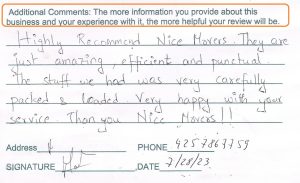 Additional Comments: The more information you provide about this
business and your experience with it, the more helpful your review will be.
Highly Recommend Nice Movers. They are
just amazing, efficient and punctual.
The stuff we had was very carefully
packed & loaded. Very happy with your
service. Than you Nice Movers!!
Address PHONE 4257863759
SIGNATURE DATE 7/28/23